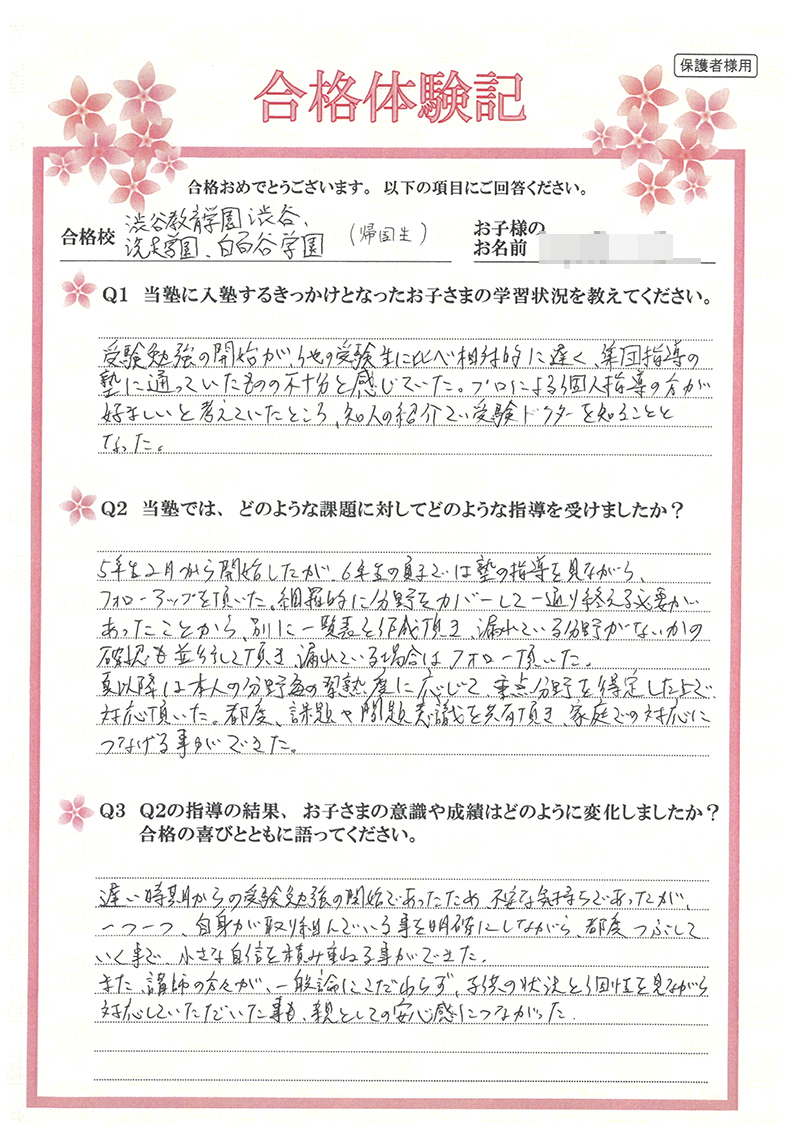 保護者様用
合格体験記
合格おめでとうございます。以下の項目にご回答ください。
合格校 渋谷教育学園渋谷、
洗足学園、白百合学園 (帰国生)
お子様の
お名前
Q1 当塾に入塾するきっかけとなったお子さまの学習状況を教えてください。
受験勉強の開始が、他の受験生に比べ相対的に遅く、集団指導の
塾に通っていたものの不十分と感じていた。プロによる個人指導の方が
好ましいと考えていたところ、知人の紹介で受験ドクターを知ることと
なった。
Q2 当塾では、どのような課題に対してどのような指導を受けましたか？
5年生2月から開始したが、6年生の夏までは塾の指導を見ながら、
フォローアップを頂いた。網羅的に分野をカバーして一通り終える必要が
あったことから、別に一覧表を作成頂き、漏れている分野がないかの
確認も並行して頂き、漏れている場合はフォロー頂いた。
夏以降は本人の分野毎の習熟度に応じて、重点分野を特定した上で
対応頂いた。都度、課題や問題意識を共有頂き、家庭での対応に
つなげる事ができた。
Q3 Q2の指導の結果、お子さまの意識や成績はどのように変化しましたか？
合格の喜びとともに語ってください。
遅い時期からの受験勉強の開始であったため、不安な気持ちであったが、
一つ一つ、自身が取り組んでいる事を明確にしながら、都度つぶして
いく事で、小さな自信を積み重ねる事ができた。
また、講師の方々が、一般論にこだわらず、子供の状況と個性を見ながら
対応していただいた事も、親としての安心感につながった。